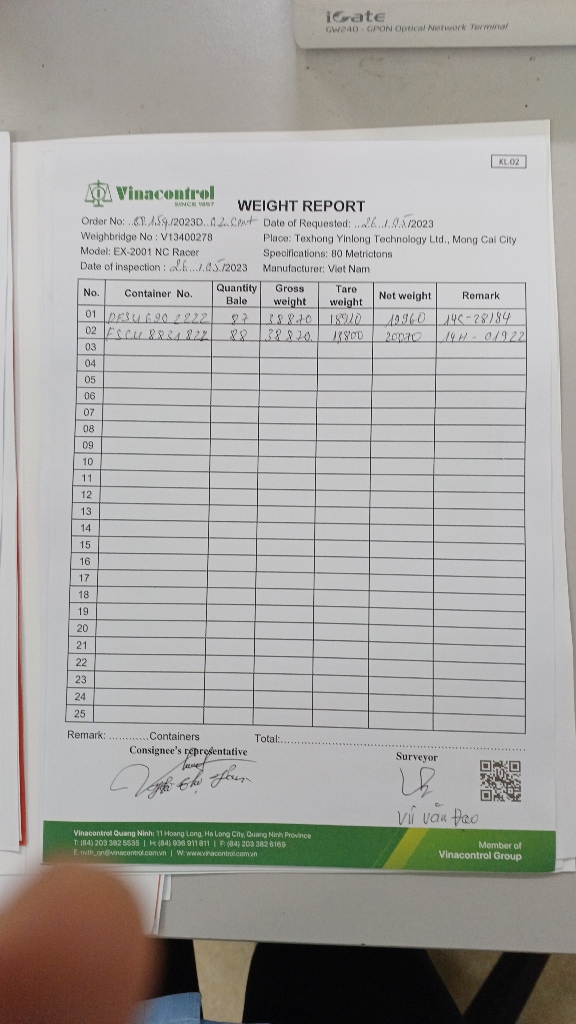 iGate
GW240 - GPON Optical Network Terminal
KL.02
Vinacontrol
SINCE 1957
WEIGHT REPORT
Order No: /2023D 02 Cont Date of Requested: 26 / 05 /2023
Weighbridge No : V13400278 Place: Texhong Yinlong Technology Ltd., Mong Cai City
Model: EX-2001 NC Racer Specifications: 80 Metrictons
Date of inspection : 26 / 05 /2023 Manufacturer: Viet Nam
No. Container No. Quantity Bale Gross weight Tare weight Net weight Remark
01 87 38870 18910 19960 14C-28184
02 88 38870 18800 20070 14H - 01922
03
04
05
06
07
08
09
10
11
12
13
14
15
16
17
18
19
20
21
22
23
24
25
Remark: ............Containers Total:
Consignee's representative Surveyor
Vũ Văn Đạo
Vinacontrol Quang Ninh: 11 Hoang Long, Ha Long City, Quang Ninh Province
T: (84) 203 382 5535 | H: (84) 936 911 811 | F: (84) 203 382 6169
E: nvth_qn@vinacontrol.com.vn | W: www.vinacontrol.com.vn
Member of
Vinacontrol Group